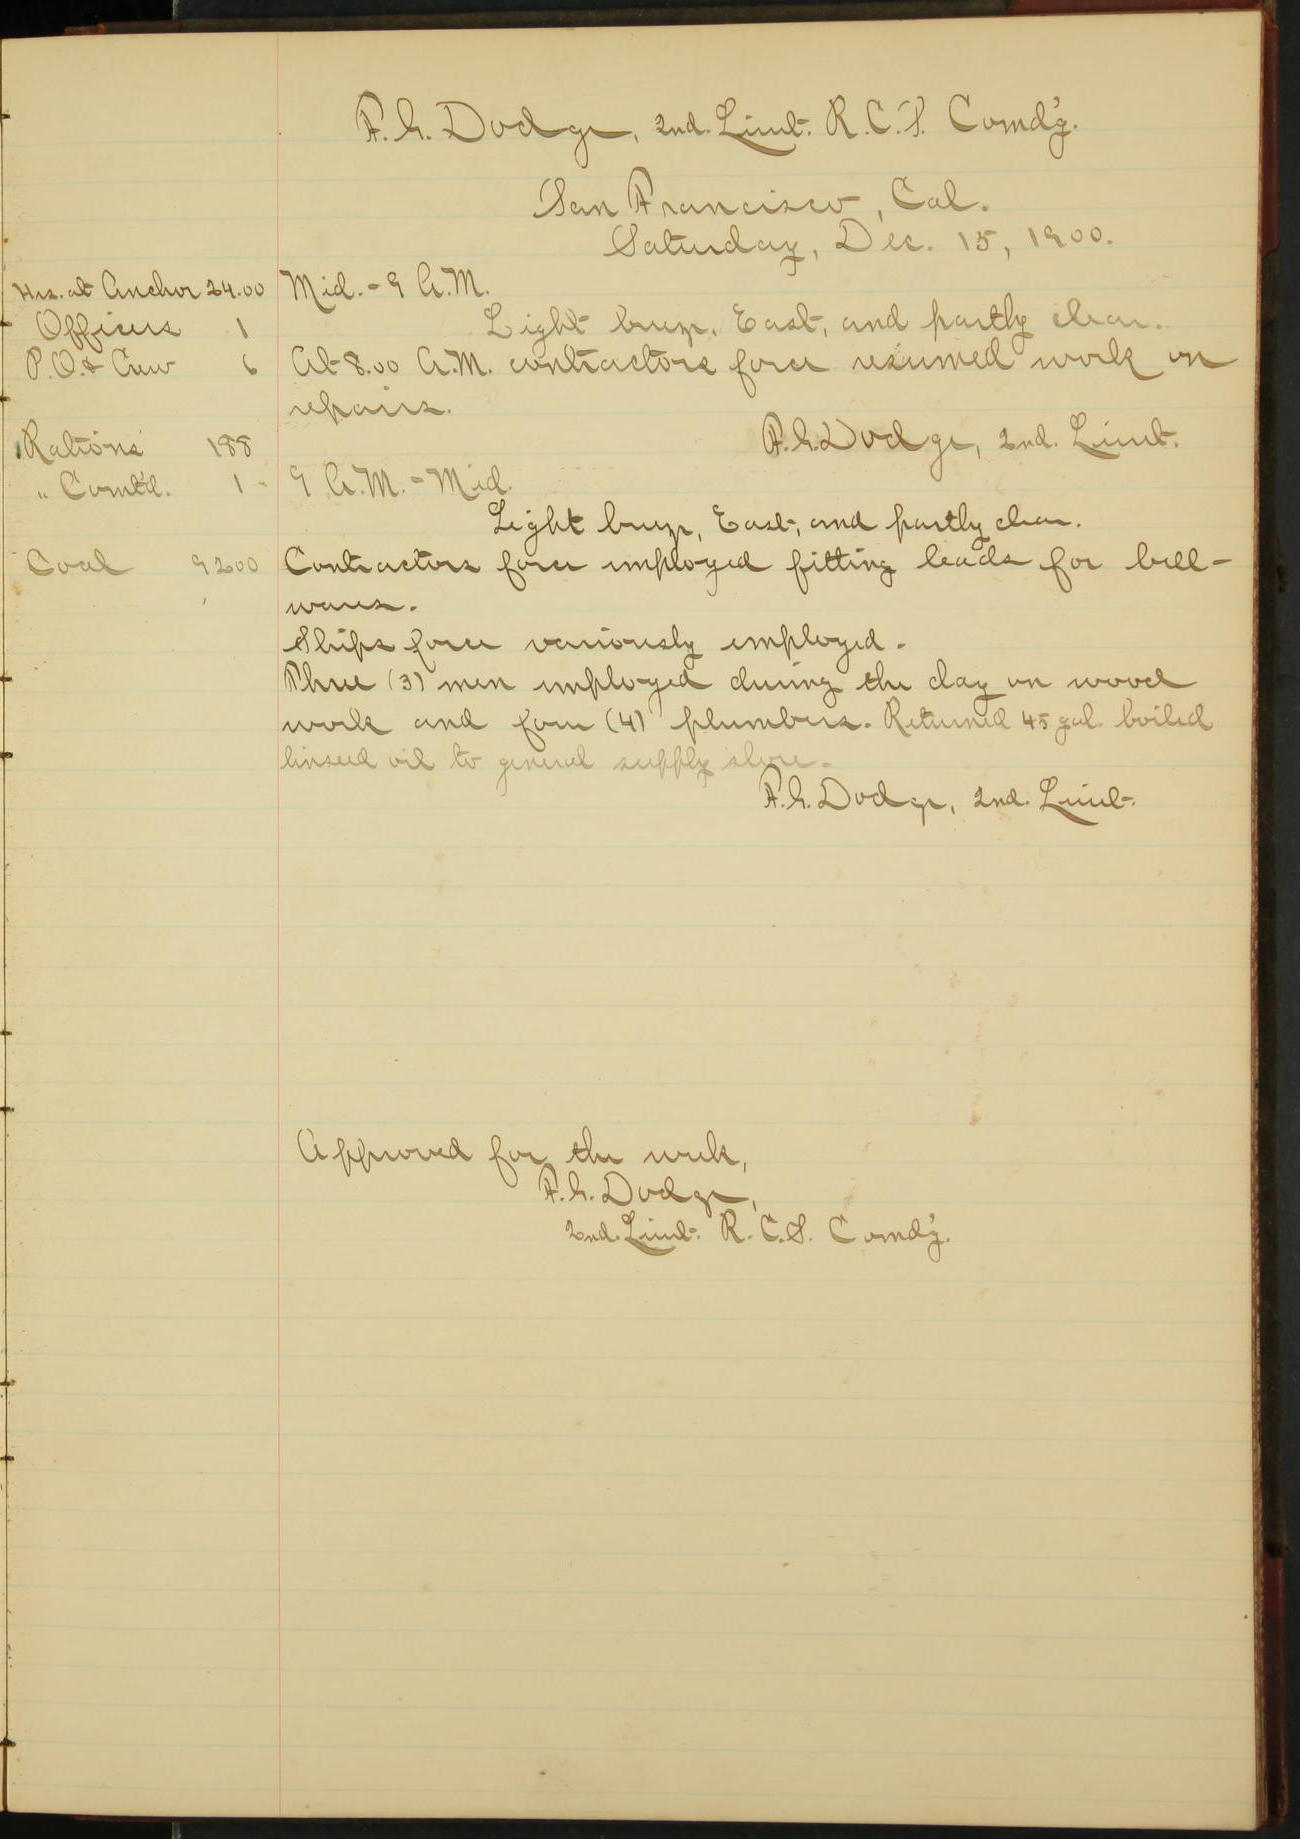 F.G. Dodge, 2nd. Lieut. R.C.S. Comd'g.
San Francisco, Cal.
Saturday, Dec. 15, 1900.
Hrs. at Anchor 24.00
Mid. - 9 A.M.
Officers 1
Light breeze, East, and partly clear.
P.O. & Crew 6
At 8.00 A.M. contractors force resumed work on
repairs.
Rations 188
F.G. Dodge, 2nd. Lieut.
" Comt'd. 1
9 A.M. - Mid.
Light breeze, East, and partly clear.
Coal 9200
Contractors force employed fitting leads for bell-
wires.
Ships force variously employed.
Three (3) men employed during the day on wood
work and four (4) plumbers. Returned 45 gal. boiled
linseed oil to general supply store.
F.G. Dodge, 2nd. Lieut.
Approved for the week,
F.G. Dodge,
2nd. Lieut. R.C.S. Comd'g.